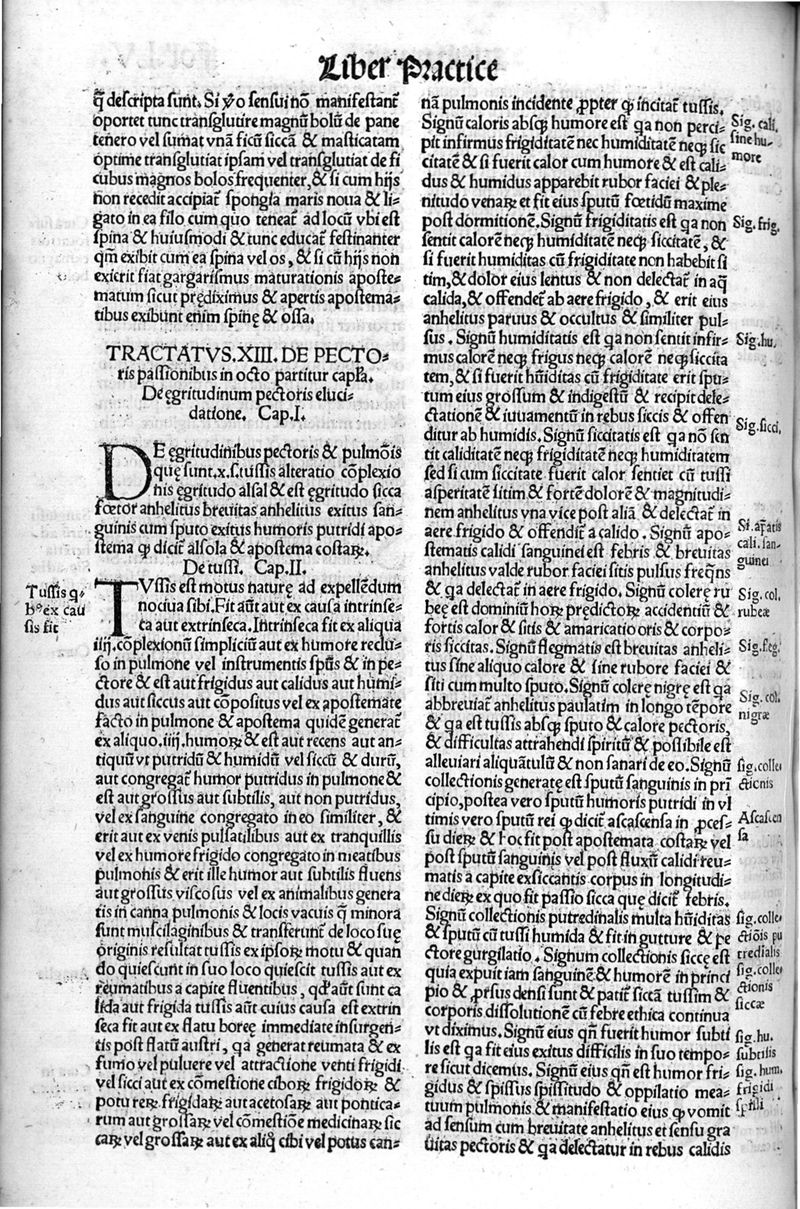 Liber Practice
q̄ descripta sunt. Si ṽo sensui nõ manifestant̃
oportet tunc transglutire magnũ bolũ de pane
tenero vel sumat vnã ficũ siccã & masticatam
optime transglutiat ipsam vel transglutiat de fi
cubus magnos bolos frequenter, & si cum hijs
non recedit accipiat̃ spongia maris noua & li=
gato in ea filo cum quo teneat̃ ad locũ vbi est
spina & huiusmodi & tunc educat̃ festinanter
qm̃ exibit cum ea spina vel os, & si cũ hijs non
exierit fiat gargarismus maturationis aposte=
matum sicut prędiximus & apertis apostema=
tibus exibunt enim spinę & ossa.
TRACTATVS. XIII. DE PECTO=
ris passionibus in octo partitur capľa.
De ęgritudinum pectoris eluci=
datione. Cap. I.
DE ęgritudinibus pectoris & pulmõis
quę sunt .x. s. tussis alteratio cõplexio
nis ęgritudo alsal & est ęgritudo sicca
fœtor anhelitus breuitas anhelitus exitus san=
guinis cum sputo exitus humoris putridi apo=
stema qđ dicit̃ alsola & apostema costaꝝ.
De tussi. Cap. II.
Tussis q̃
b⁹ ex cau
sis fit
TVssis est motus naturę ad expellẽdum
nociua sibi. Fit aũt aut ex causa intrinse=
ca aut extrinseca. Intrinseca fit ex aliqua
iiij. cõplexionũ simplicium aut ex humore reclu=
so in pulmone vel instrumentis spũs & in pe=
ctore & est aut frigidus aut calidus aut humi=
dus aut siccus aut cõpositus vel ex apostemate
facto in pulmone & apostema quidẽ generat̃
ex aliquo .iiij. humoꝝ & est aut recens aut an=
tiquũ vt putridũ & humidũ vel siccũ & durũ,
aut congregat̃ humor putridus in pulmone &
est aut grossus aut subtilis, aut non putridus,
vel ex sanguine congregato in eo similiter, &
erit aut ex venis pulsatilibus aut ex tranquillis
vel ex humore frigido congregato in meatibus
pulmonis & erit ille humor aut subtilis fluens
aut grossus viscosus vel ex animalibus genera
tis in canna pulmonis & locis vacuis q̄ minora
sunt muscilaginibus & transferunt̃ de loco suę
originis resultat tussis ex ipsoꝝ motu & quan
do quiescunt in suo loco quiescit tussis aut ex
reumatibus a capite fluentibus, qđ aut sunt ca
lida aut frigida tussis aut cuius causa est extrin
seca fit aut ex flatu boreę immediate insurgen=
tis post flatũ austri, qa generat reumata & ex
fumo vel puluere vel attractione venti frigidi
vel sicci aut ex cõmestione ciboꝝ frigidoꝝ &
potu reꝝ frigidaꝝ aut acetosaꝝ aut pontica=
rum aut grossaꝝ vel cõmestiõe medicinaꝝ sic
caꝝ vel grossaꝝ aut ex aliq̃ cibi vel potus can=
nã pulmonis incidente ꝓpter qđ incitat̃ tussis.
Signũ caloris absqꝫ humore est qa non perci=
pit infirmus frigiditatẽ nec humiditatẽ neqꝫ sic
citatẽ & si fuerit calor cum humore & est cali=
dus & humidus apparebit rubor faciei & ple=
nitudo venaꝝ et fit eius sputũ fœtidũ maxime
post dormitionẽ. Signũ frigiditatis est qa non
sentit calorẽ neqꝫ humiditatẽ neqꝫ siccitatẽ, &
si fuerit humiditas cũ frigiditate non habebit si
tim, & dolor eius lentus & non delectat̃ in aq̃
calida, & offendet̃ ab aere frigido, & erit eius
anhelitus paruus & occultus & similiter pul=
sus. Signũ humiditatis est qa non sentit infir=
mus calorẽ neqꝫ frigus neqꝫ calorẽ neqꝫ siccita
tem, & si fuerit hũiditas cũ frigiditate erit spu=
tum eius grossum & indigestũ & recipit dele=
ctationẽ & iuuamentũ in rebus siccis & offen
ditur ab humidis. Signũ siccitatis est qa nõ sen
tit caliditatẽ neqꝫ frigiditatẽ neqꝫ humiditatem
sed si cum siccitate fuerit calor sentiet cũ tussi
asperitatẽ sitim & fortẽ dolorẽ & magnitudi=
nem anhelitus vna vice post aliã & delectat̃ in
aere frigido & offendit̃ a calido. Signũ apo=
stematis calidi sanguinei est febris & breuitas
anhelitus valde rubor faciei sitis pulsus freq̃ns
& qa delectat̃ in aere frigido. Signũ colerę ru
beę est dominiũ hoꝝ prędictoꝝ accidentiũ &
fortis calor & sitis & amaricatio oris & corpo=
ris siccitas. Signũ flegmatis est breuitas anheli=
tus sine aliquo calore & sine rubore faciei &
siti cum multo sputo. Signũ colerę nigrę est qa
abbreuiat̃ anhelitus paulatim in longo tẽpore
& qa est tussis absqꝫ sputo & calore pectoris,
& difficultas attrahendi spiritũ & possibile est
alleuiari aliquãtulũ & non sanari de eo. Signũ
collectionis generatę est sputũ sanguinis in pri
cipio, postea vero sputũ humoris putridi in vl
timis vero sputũ rei qđ dicit̃ ascascensa in ꝓces=
su dieꝝ & hoc fit post apostemata costaꝝ vel
post sputũ sanguinis vel post fluxũ calidi reu=
matis a capite exsiccantis corpus in longitudi=
ne dieꝝ ex quo fit passio sicca que dicit̃ febris.
Signũ collectionis putredinalis multa hũiditas
& sputũ cũ tussi humida & fit in gutture & pe
ctore gurgilatio. Signum collectionis siccę est
quia expuit iam sanguinẽ & humorẽ in princi
pio & ꝓrsus densi sunt & patit̃ siccã tussim &
corporis dissolutionẽ cũ febre ethica continua
vt diximus. Signũ eius qñ fuerit humor subti
lis est qa fit eius exitus difficilis in suo tempo=
re sicut dicemus. Signũ eius qñ est humor fri=
gidus & spissus spissitudo & oppilatio mea=
tuum pulmonis & manifestatio eius qđ vomit
ad sensum cum breuitate anhelitus et sensu gra
uitas pectoris & qa delectatur in rebus calidis
Sig. cali.
sine hu=
more
Sig. frig.
Sig. hu.
Sig. sicci.
Si. ap̃atis
cali. san=
guinei
Sig. col.
rubeæ
Sig. fleg.
Sig. col.
nigræ
sig. colle
ctionis
Ascascen
sa
sig. colle
ctiõis pu
tredialis
sig. colle
ctionis
siccæ
sig. hu.
subtilis
sig. hum.
frigidi